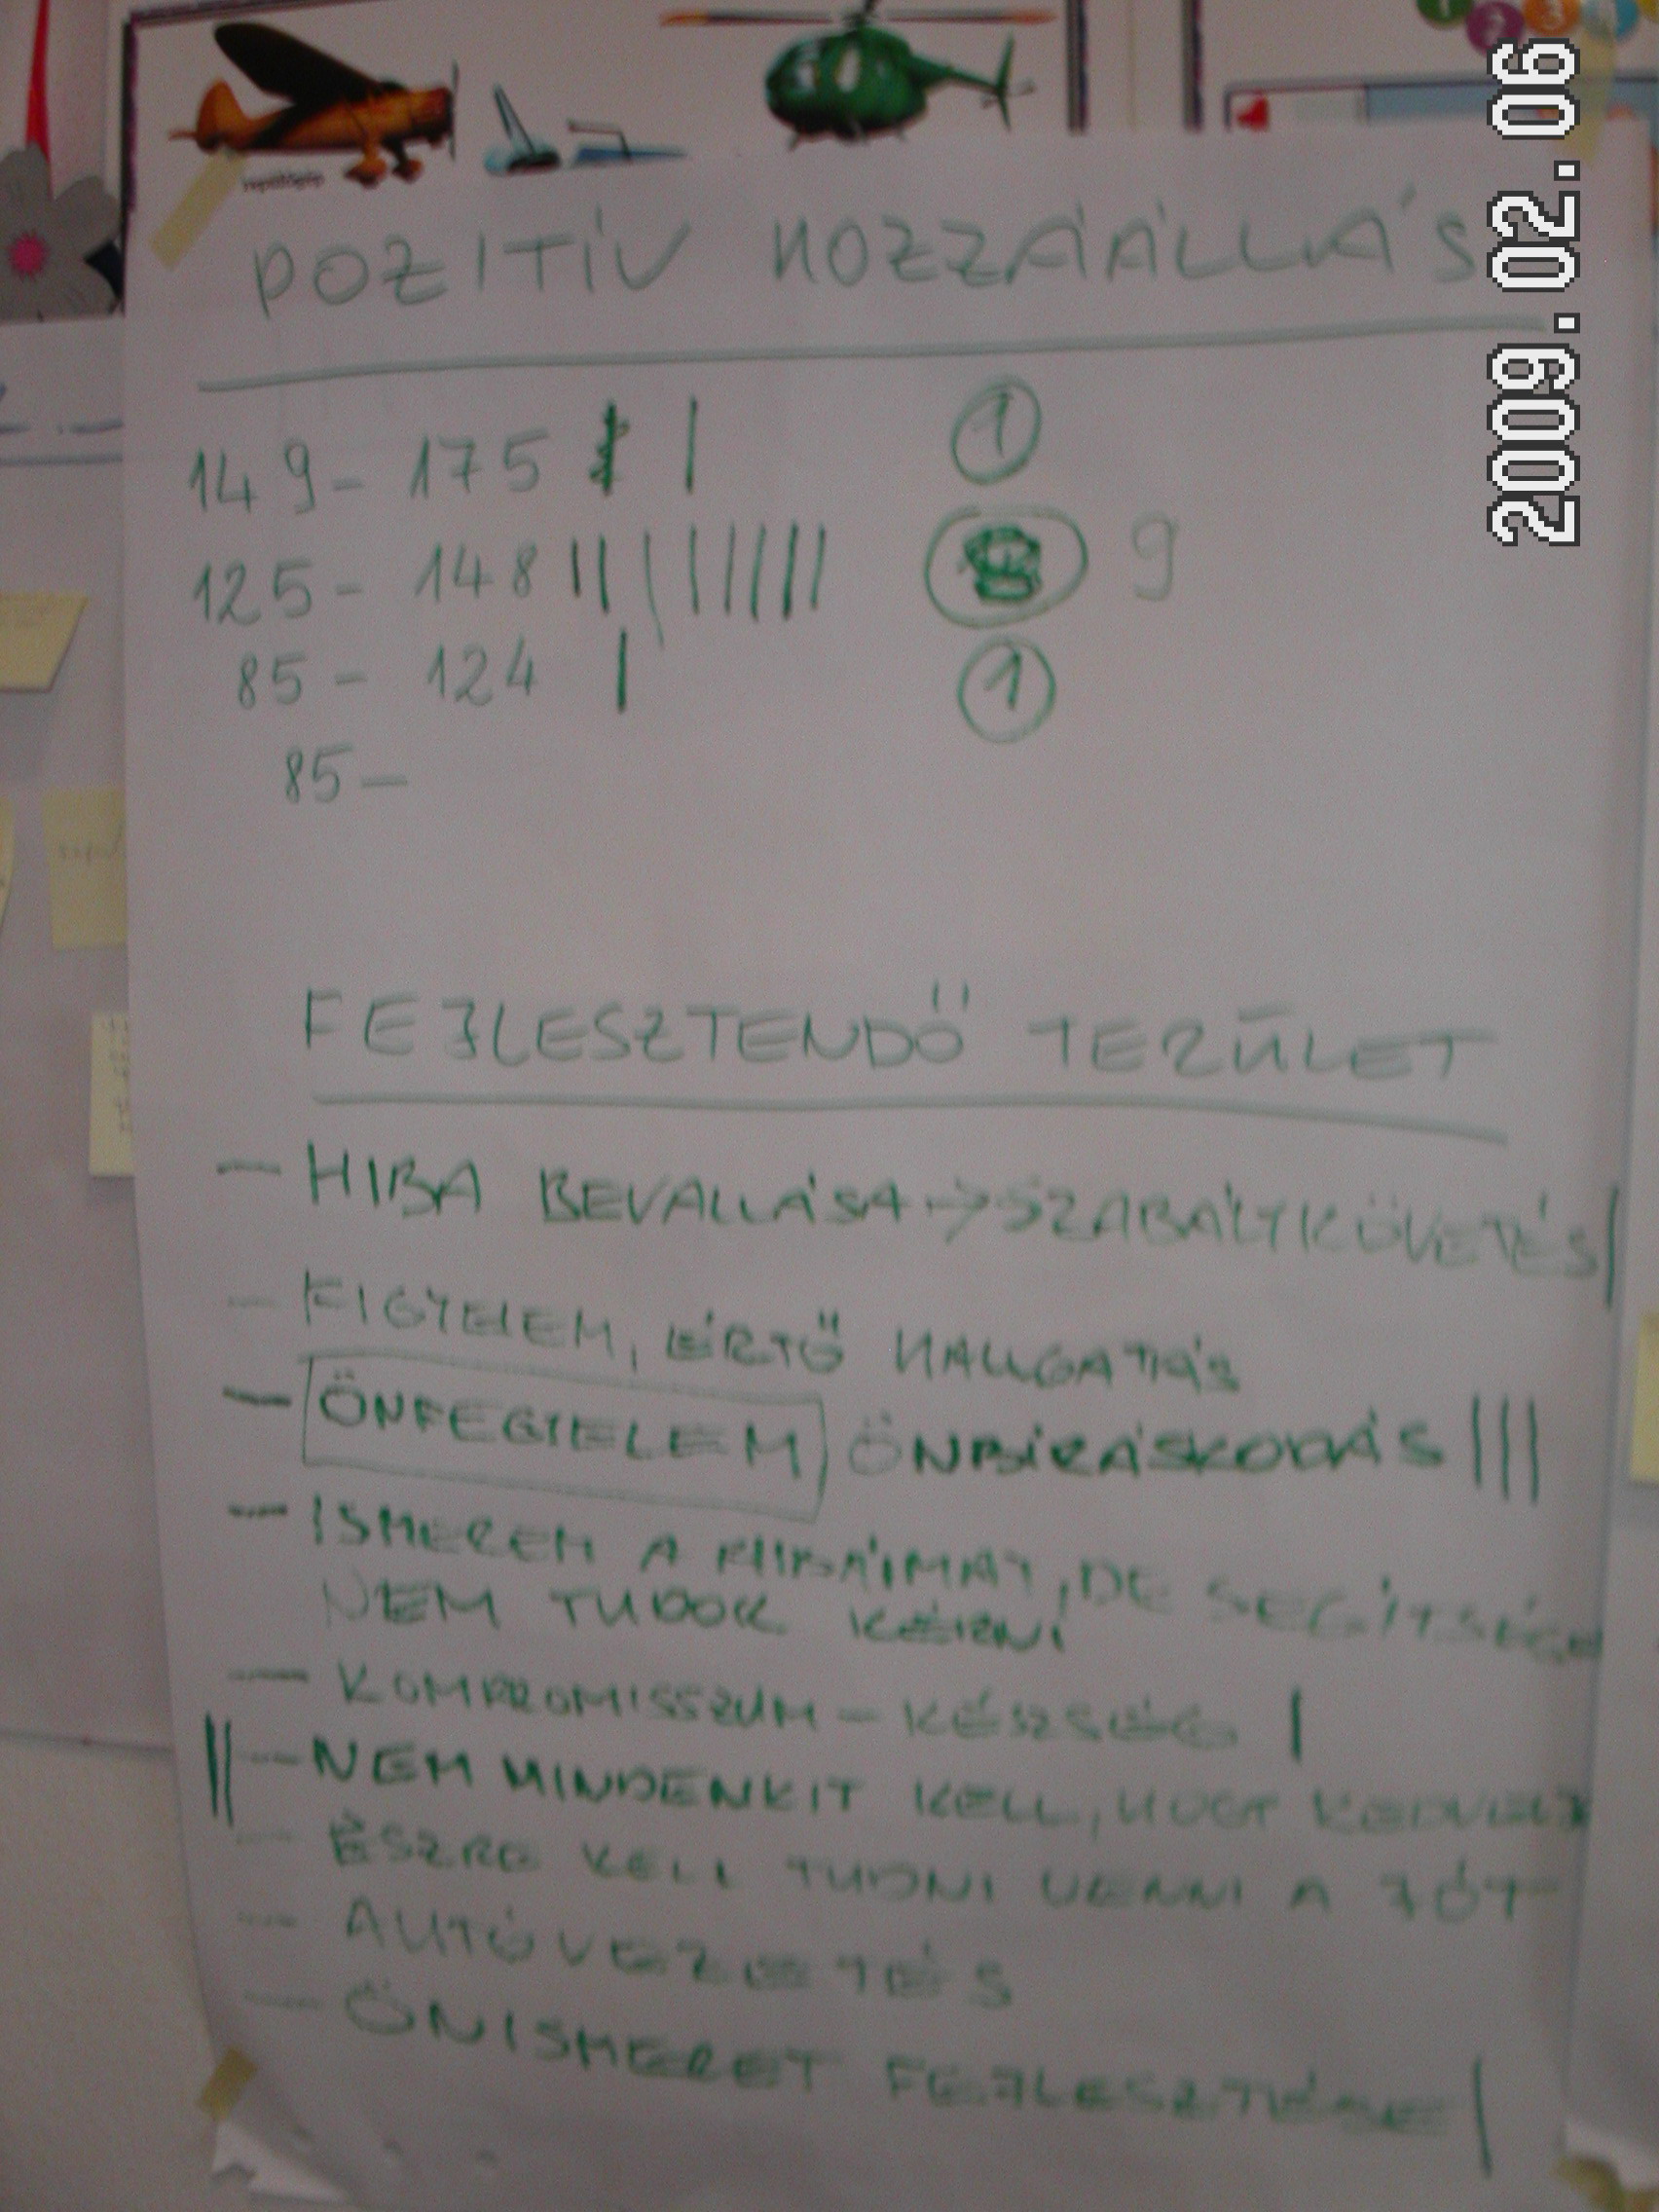 repülőgép
2009.02.06
POZITÍV HOZZÁÁLLÁS
149 - 175 | ①
125 - 148 ||||||||| 9
85 - 124 | ①
85 -
FEJLESZTENDŐ TERÜLET
- HIBA BEVALLÁSA → SZABÁLYKÖVETÉS |
- FIGYELEM, ÉRTŐ HALLGATÁS
- ÖNFEGYELEM ÖNBÍRÁSKODÁS |||
- ISMEREM A HIBÁIMAT, DE SEGÍTSÉGET
NEM TUDOK KÉRNI
- KOMPROMISSZUM - KÉSZSÉG |
|| - NEM MINDENKIT KELL, HOGY KEDVELJ
- ÉSZRE KELL TUDNI VENNI A JÓT
- AUTÓVEZETÉS
- ÖNISMERET FEJLESZTÉSE |